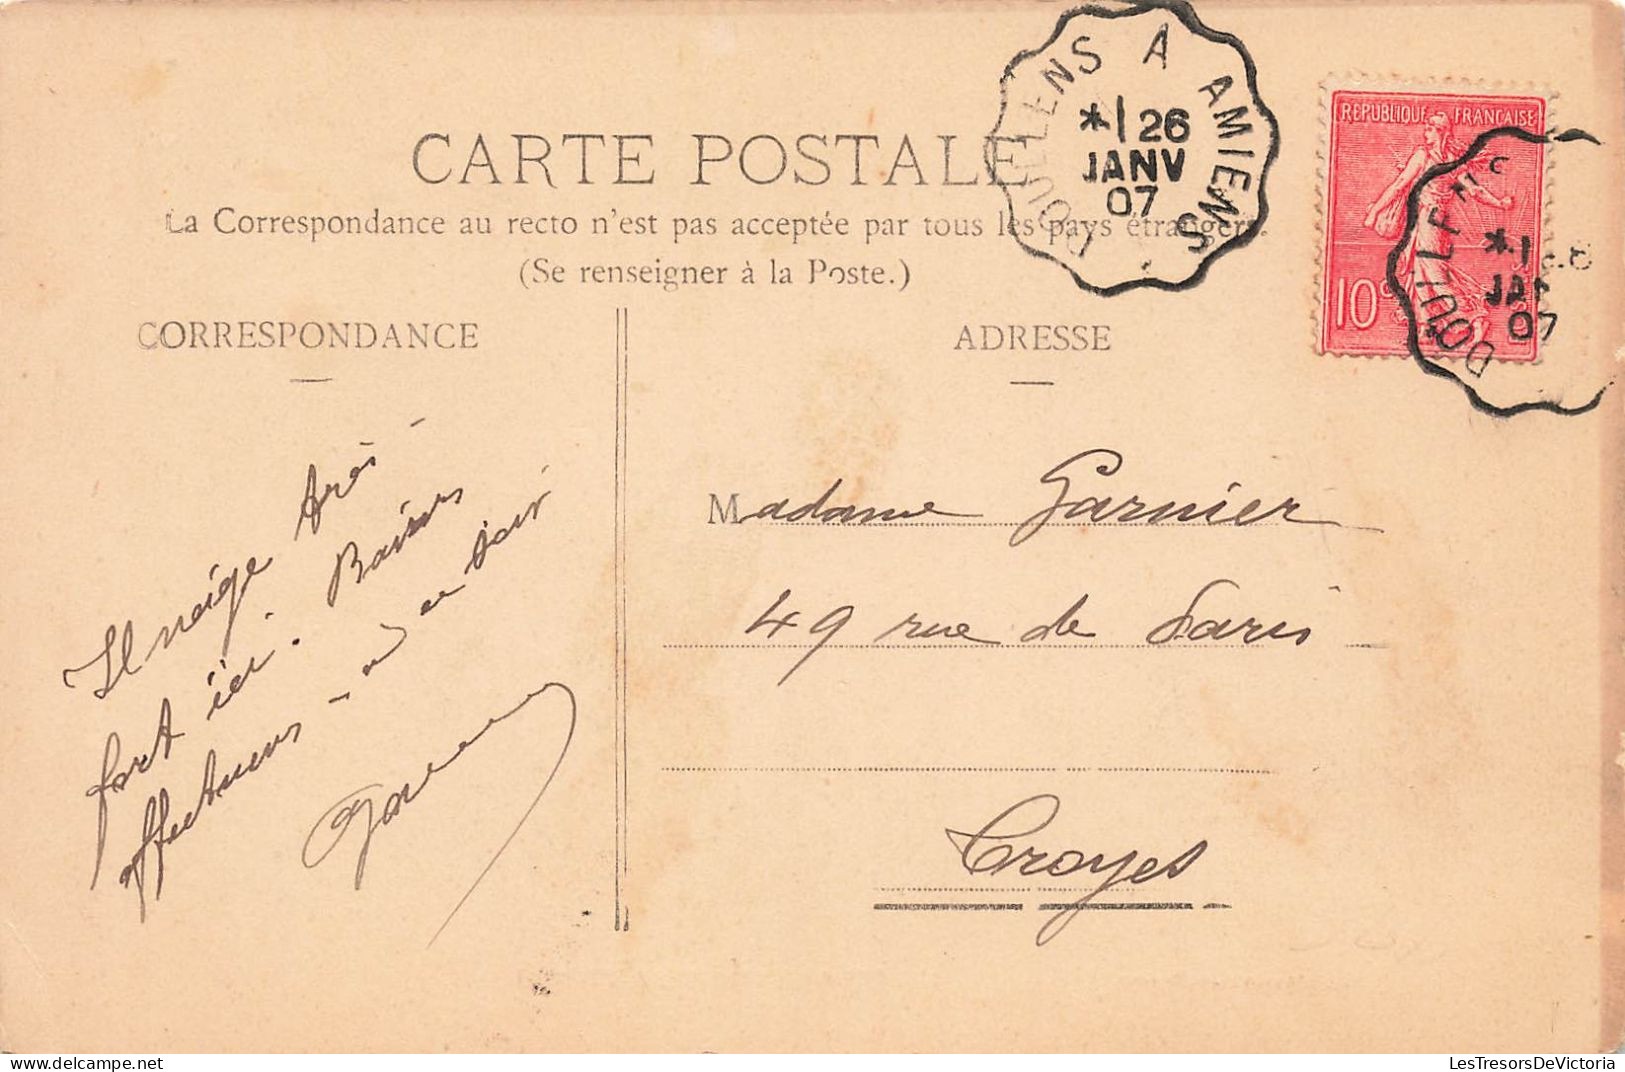 CARTE POSTALE
La Correspondance au recto n'est pas acceptée par tous les pays étrangers.
(Se renseigner à la Poste.)
DOULLENS A AMIENS
*1 26
JANV
07
REPUBLIQUE FRANCAISE
10c
DOULLENS
*1
JAN
07
CORRESPONDANCE
ADRESSE
Il neige très
fort ici. Baisers
affectueux - à ce soir
Madame Garnier
49 rue de Paris
Troyes
LesTresorsDeVictoria